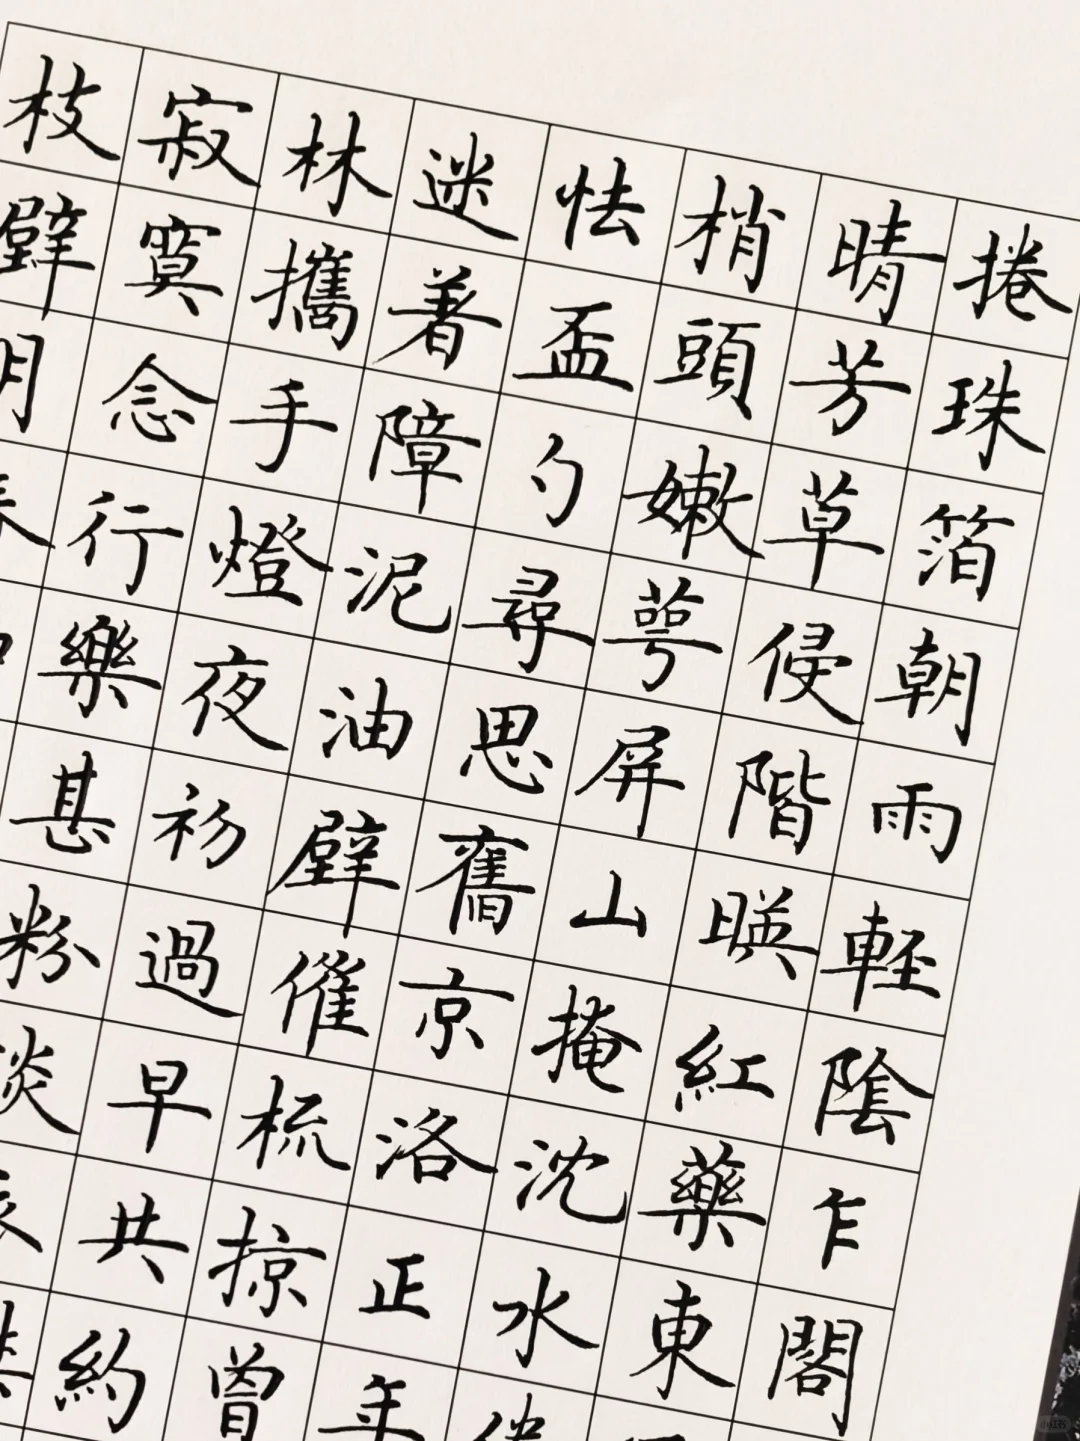 捲珠箔朝雨輕陰乍閣
晴芳草侵階暎紅藥東
梢頭嫩萼屏山掩沈水
怯盃勺尋思舊京洛正年
迷著障泥油壁催梳掠曾
林攜手燈夜初過早共約
寂寞念行樂甚粉淡
枝璧月